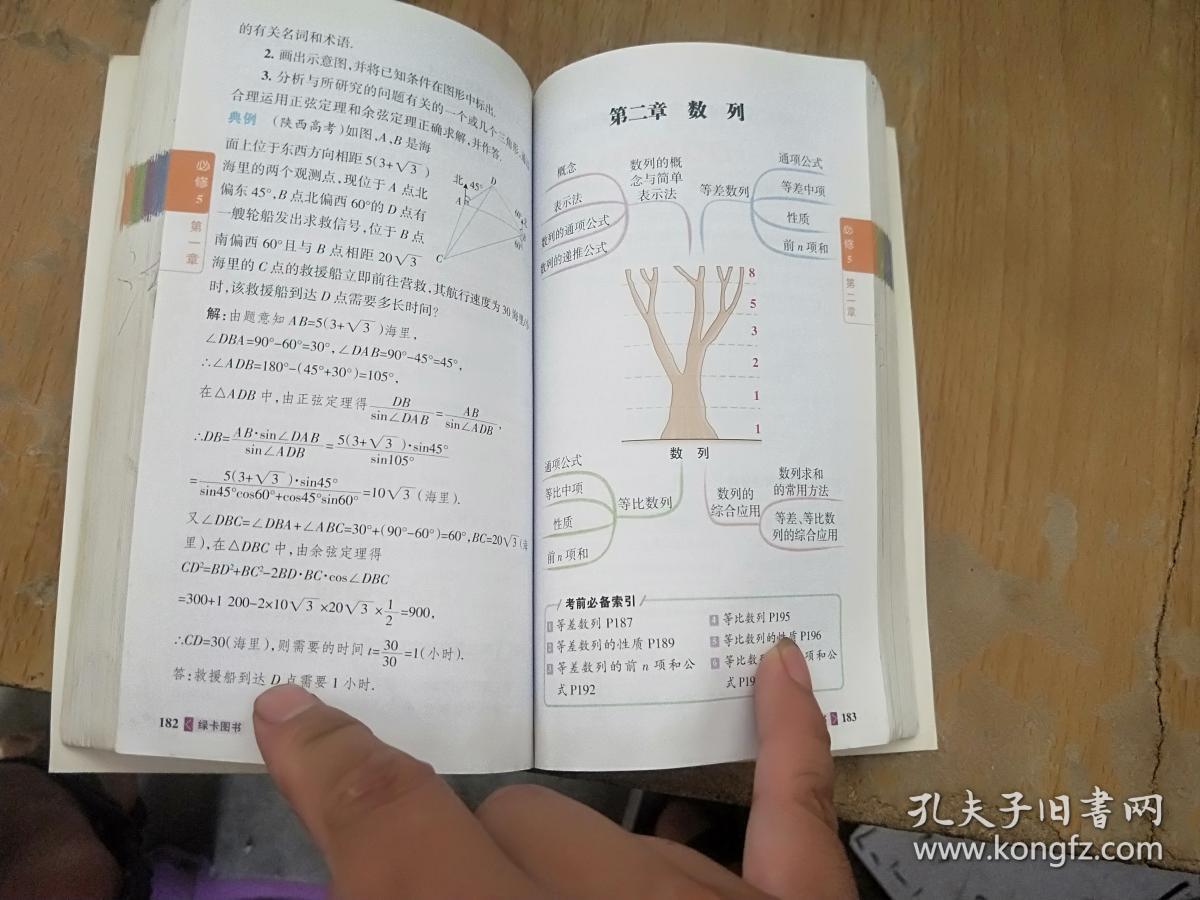 的有关名词和术语.
2. 画出示意图,并将已知条件在图形中标出.
3. 分析与所研究的问题有关的一个或几个三角形,
合理运用正弦定理和余弦定理正确求解,并作答.
典例 (陕西高考)如图,A、B是海
面上位于东西方向相距5(3+√3)
海里的两个观测点,现位于A点北
偏东45°,B点北偏西60°的D点有
一艘轮船发出求救信号,位于B点
南偏西60°且与B点相距20√3
海里的C点的救援船立即前往营救,其航行速度为30海里/
时,该救援船到达D点需要多长时间?
北 45° D
A
60°
60°
C
解:由题意知AB=5(3+√3)海里,
∠DBA=90°-60°=30°,∠DAB=90°-45°=45°,
∴∠ADB=180°-(45°+30°)=105°,
在△ADB中,由正弦定理得DB/sin∠DAB=AB/sin∠ADB,
∴DB=AB·sin∠DAB/sin∠ADB=5(3+√3)·sin45°/sin105°
=5(3+√3)·sin45°/sin45°cos60°+cos45°sin60°=10√3(海里).
又∠DBC=∠DBA+∠ABC=30°+(90°-60°)=60°,BC=20√3(海
里),在△DBC中,由余弦定理得
CD²=BD²+BC²-2BD·BC·cos∠DBC
=300+1 200-2×10√3×20√3×1/2=900,
∴CD=30(海里),则需要的时间t=30/30=1(小时).
答:救援船到达D点需要1小时.
182 绿卡图书
必修5
第一章
第二章 数列
概念
表示法
数列的通项公式
数列的递推公式
数列的概
念与简单
表示法
等差数列
通项公式
等差中项
性质
前n项和
8
5
3
2
1
1
数 列
通项公式
等比中项
性质
前n项和
等比数列
数列的
综合应用
数列求和
的常用方法
等差、等比数
列的综合应用
考前必备索引
1 等差数列 P187
2 等差数列的性质 P189
3 等差数列的前n项和公
式 P192
4 等比数列 P195
5 等比数列的性质 P196
6 等比数 项和公
式 P19
183
必修5
第二章
孔夫子旧书网
www.kongfz.com